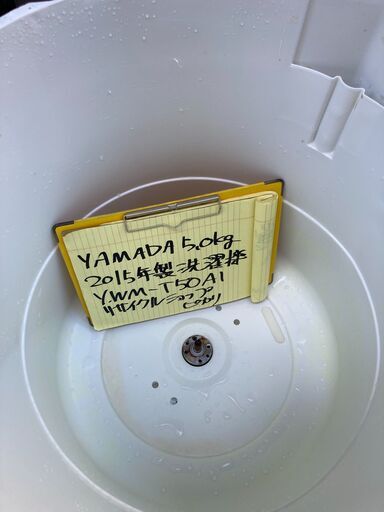 YAMADA 5.0kg
2015年製洗濯機
YWM-T50A1
リサイクルショップ